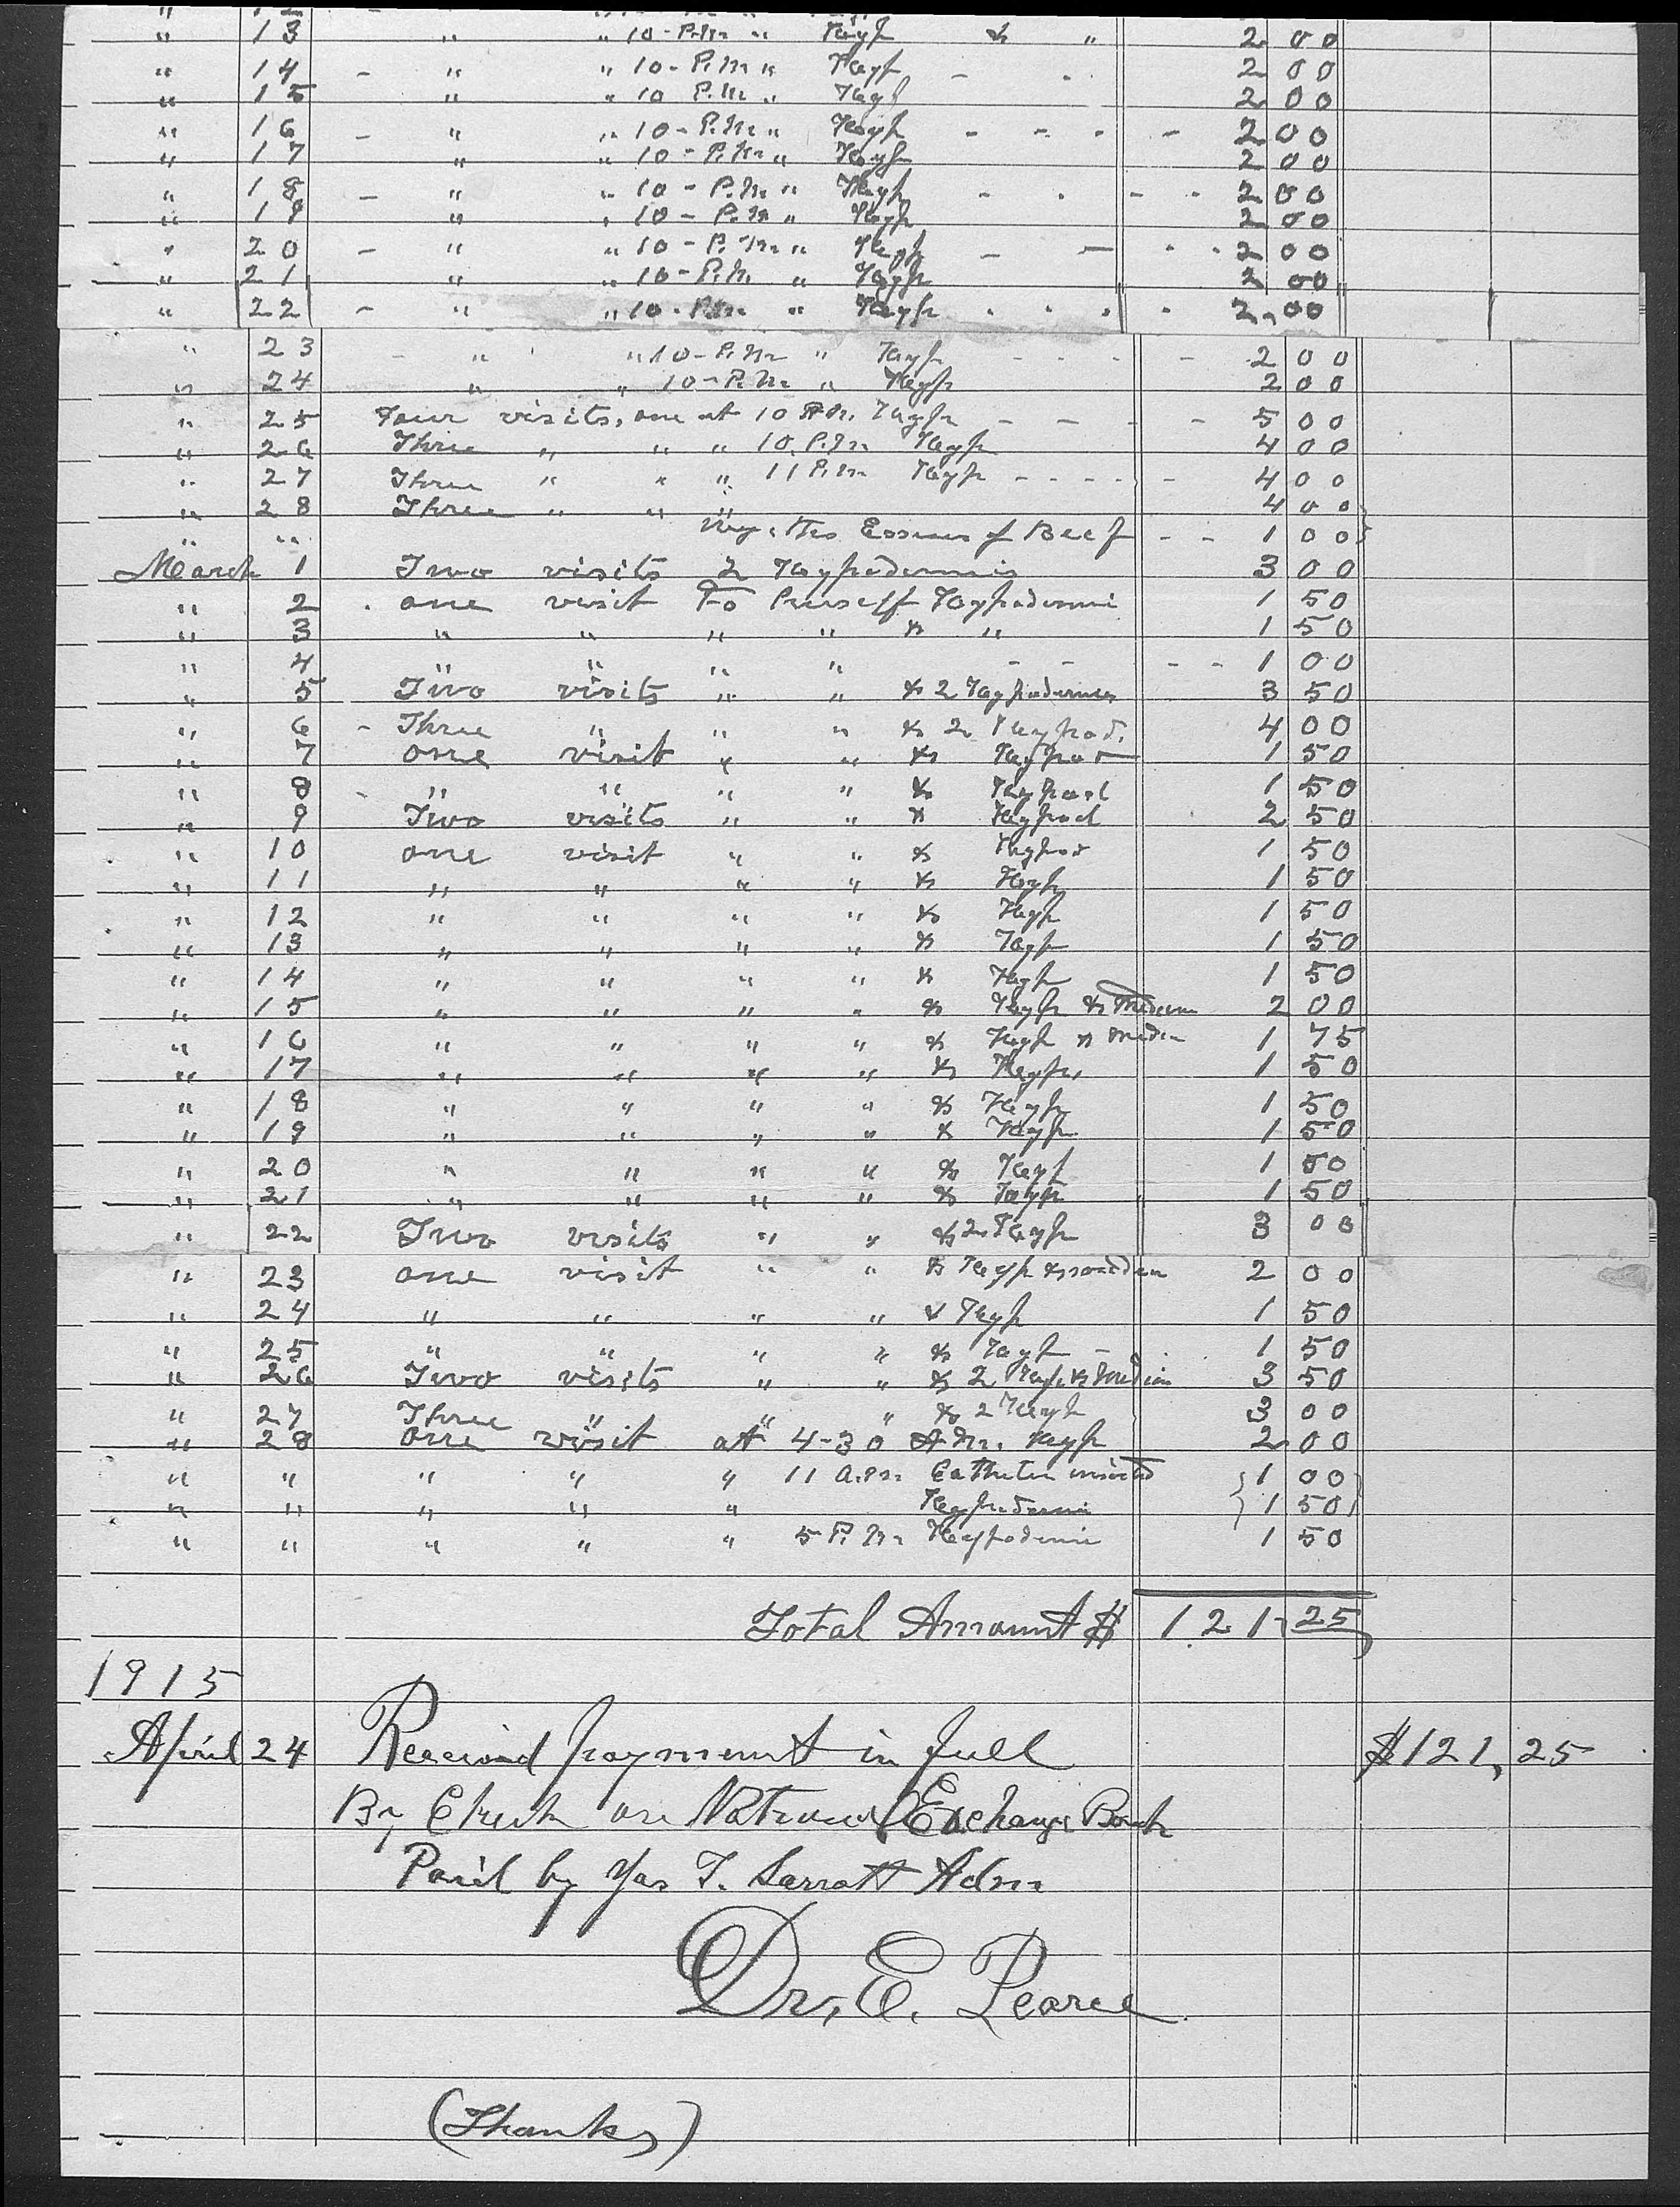 " 13 " " 10 - P.M. " Hyp & " 2 00
" 14 - " " 10 - P.M " Hyp - . 2 00
" 15 " " 10 P.M. " Hyp 2 00
" 16 - " " 10 - P.M. " Hyp - - - - 2 00
" 17 " " 10 - P.M. " Hyp 2 00
" 18 - " " 10 - P.M. " Hyp - . - - 2 00
" 19 " " 10 - P.M " Hyp 2 00
" 20 - " " 10 - P.M. " Hyp - - . . 2 00
" 21 " " 10 - P.M. " Hyp 2 00
" 22 - " " 10 - P.M. " Hyp . . . . 2,00
" 23 - " " 10 - P.M " Hyp - - - - 2 00
" 24 " " 10 - P.M. " Hyp 2 00
" 25 Four visits, one at 10 P.M. Hyp - - - 5 00
" 26 Three " " " 10. P.M Hyp 4 00
" 27 Three " " " 11 P.M Hyp - - - - - 4 00
" 28 Three " " " 4 00
" " Essence of Beef - - 1 00
March 1 Two visits 2 Hypodermics 3 00
" 2 . one visit to Hypodermic 1 50
" 3 " " " " & " 1 50
" 4 " " " " - - - - 1 00
" 5 Two visits " " & 2 Hypodermics 3 50
" 6 - Three " " " & 2 Hypod. 4 00
" 7 one visit " " & Hypod 1 50
" 8 - " " " " & Hypod 1 50
" 9 Two visits " " & Hypod 2 50
" 10 one visit " " & Hypod 1 50
" 11 " " " " & Hyp 1 50
" 12 " " " " & Hyp 1 50
" 13 " " " " & Hyp 1 50
" 14 " " " " & Hyp 1 50
" 15 " " " " & Hyp & Medicine 2 00
" 16 " " " " & Hyp & Medin 1 75
" 17 " " " " & Hyp, 1 50
" 18 " " " " & Hyp 1 50
" 19 " " " " & Hyp 1 50
" 20 " " " " & Hyp 1 50
" 21 " " " " & Hyp 1 50
" 22 Two visits " " & 2 Hyp 3 00
" 23 one visit " " & Hyp & medicin 2 00
" 24 " " " " & Hyp 1 50
" 25 " " " " & Hyp - 1 50
" 26 Two visits " " & 2 Hyp & Medicin 3 50
" 27 Three " " " & 2 Hyp 3 00
" 28 one visit at 4-30 A.M. Hyp 2 00
" " " " " 11 a.m. Catheter inserted 1 00
" " " " " Hypodermic 1 50
" " " " " 5 P.M. Hypodermic 1 50
Total Amount $ 121 25
1915
April 24 Received payment in full $121,25
By Check on National Exchange Bank
Paid by Jas T. Sarratt Adm
Dr, E. Pearce
(Thanks)